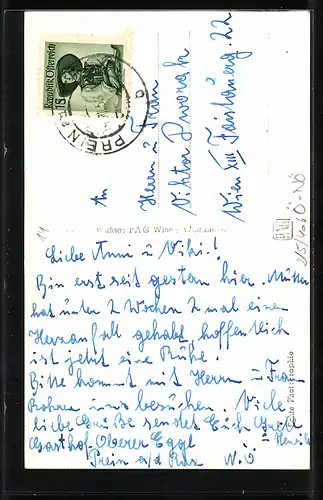 Republik Österreich
1 S
PREIN
An
Herrn u Frau
Viktor Dworak
Wien XIII Faistauerg. 22
PAG Wien
Echte Photographie
Liebe Anni u Viki!
Bin erst seit gestern hier. Mutter
hat unter 2 Wochen 2 mal einen
Herzanfall gehabt, hoffentlich
ist jetzt eine Ruhe!
Bitte kommt mit Herrn u Frau
uns besuchen. Viele
liebe Grüße sendet Euch Grete
Gasthof Oberer Eggl
Prein a/d Rax N.Ö